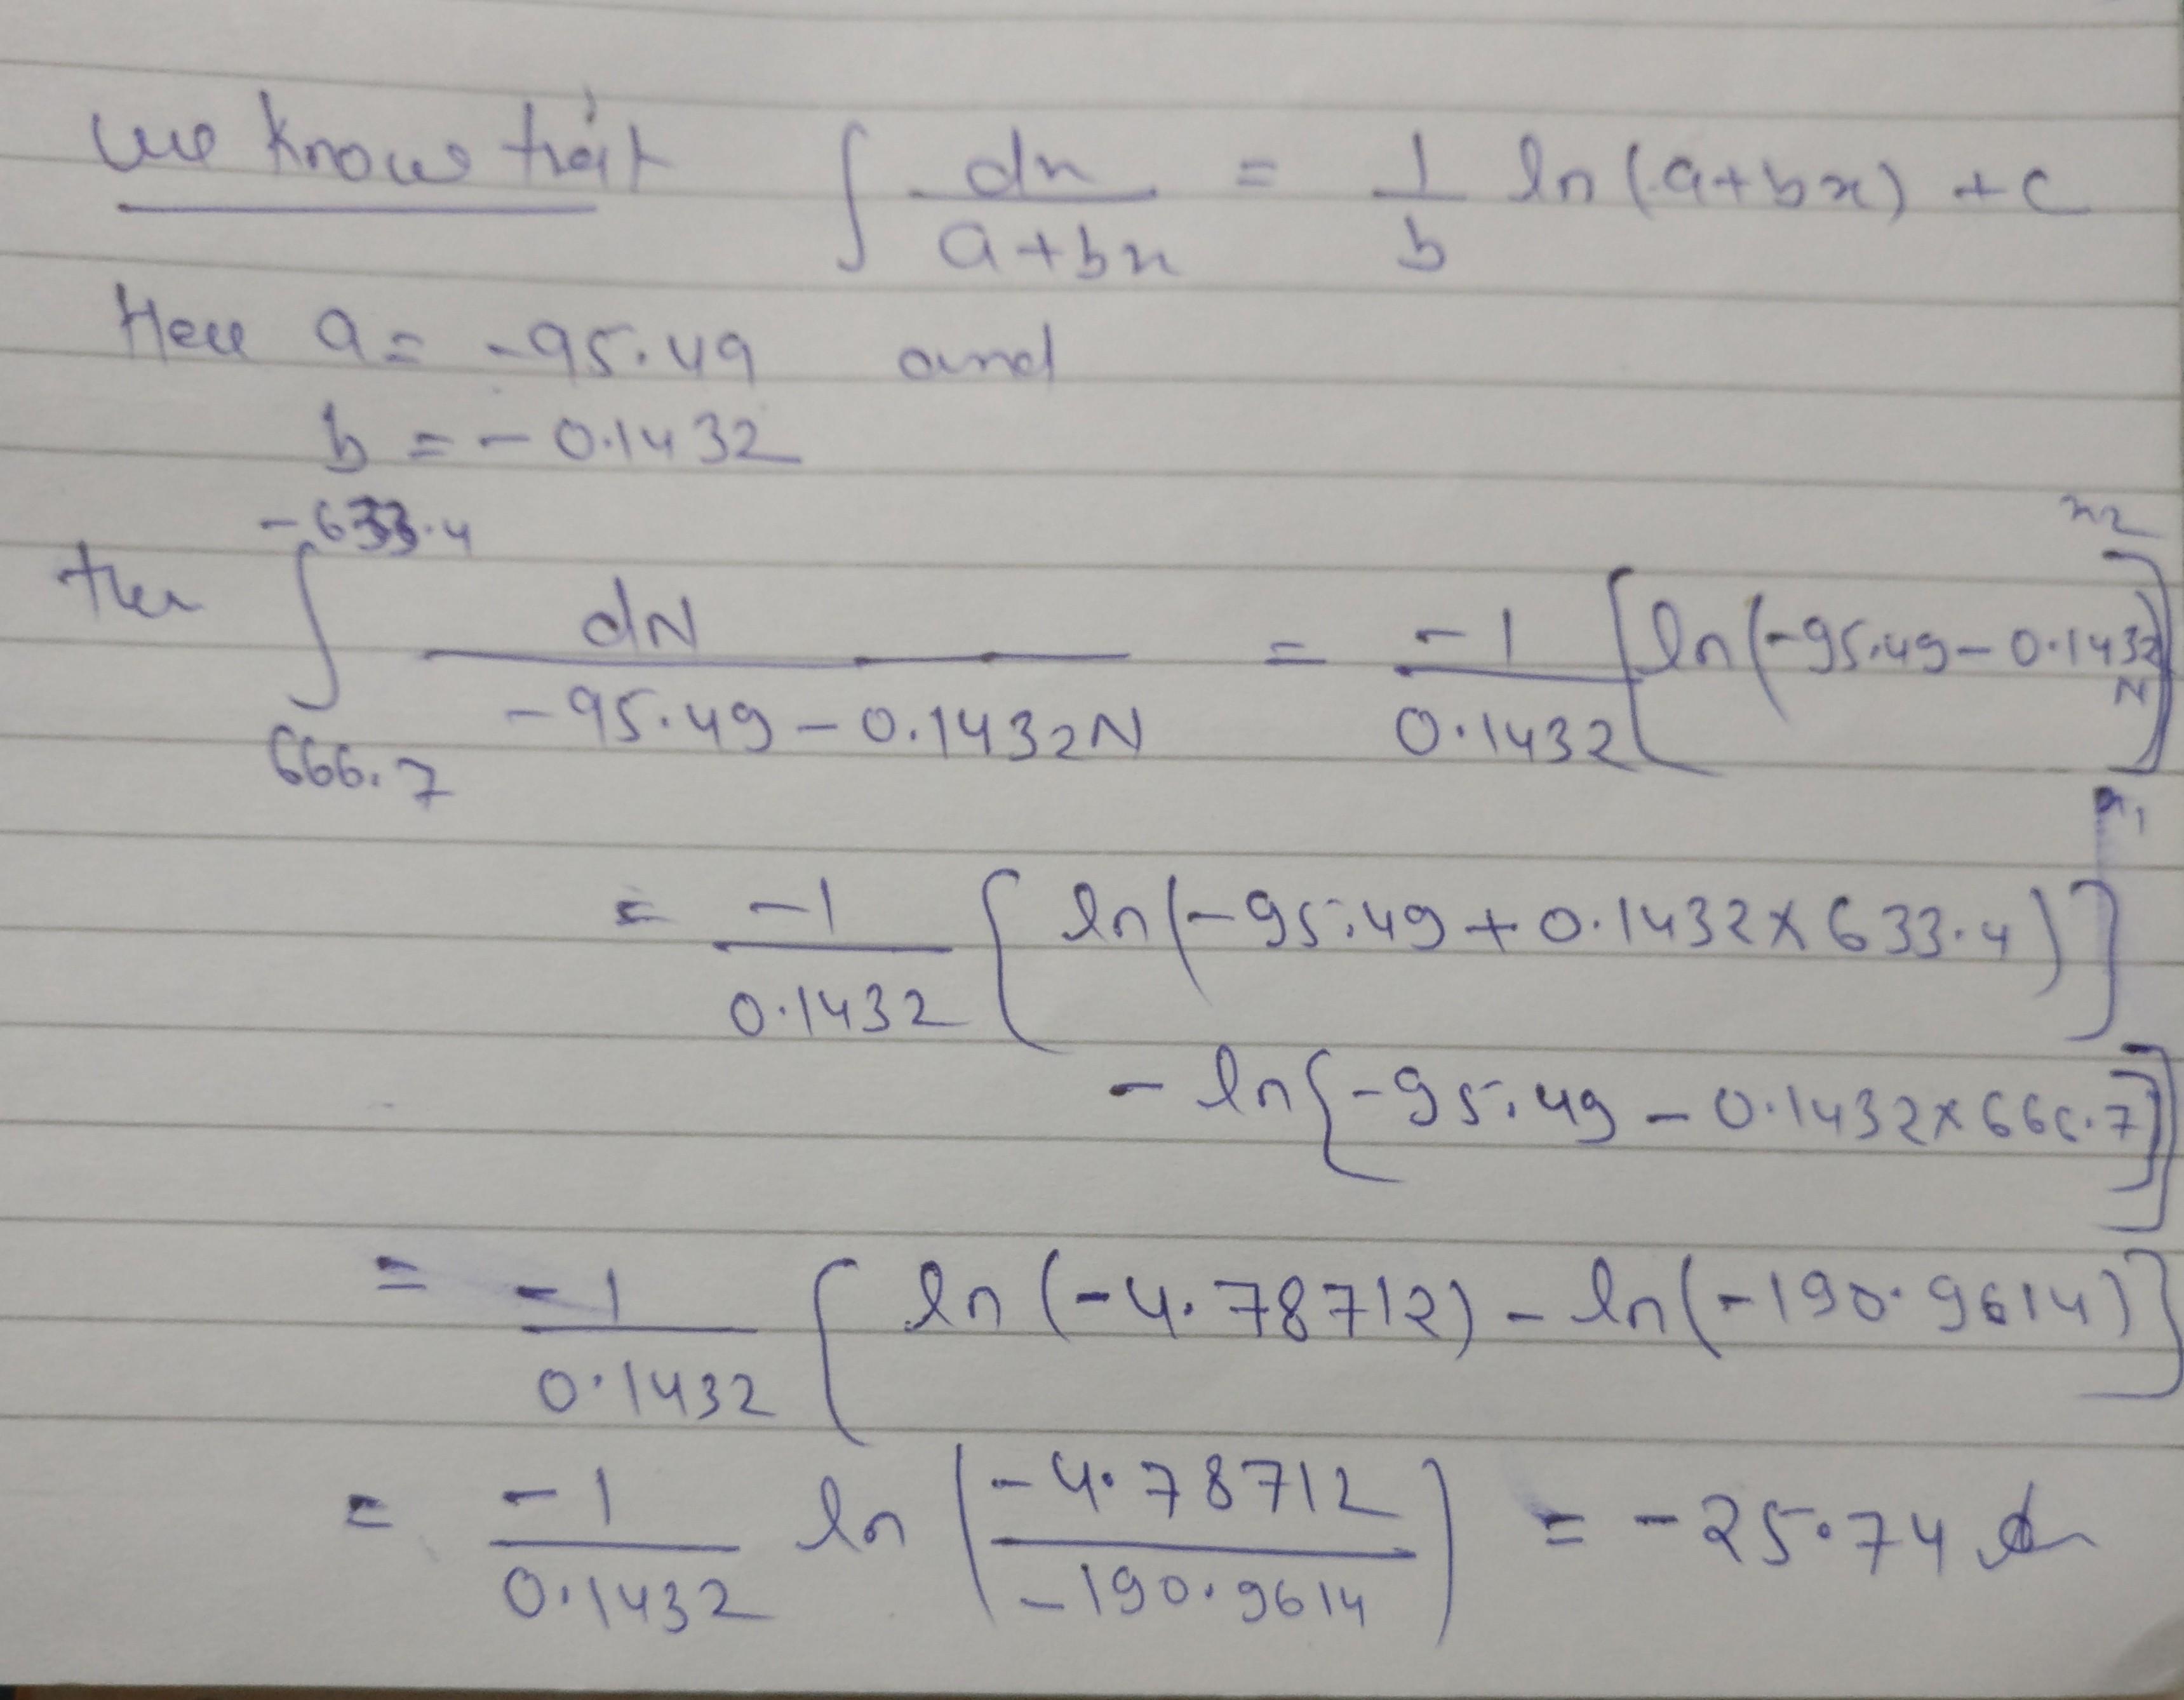 We know that ∫ dx/(a+bx) = 1/b ln(a+bx) + c
Here a = -95.49 and
b = -0.1432
then ∫_{666.7}^{-633.4} dN/(-95.49-0.1432N) = -1/0.1432 [ln(-95.49-0.1432N)]_{x1}^{x2}
= -1/0.1432 [ln(-95.49+0.1432×633.4)]
- ln{-95.49-0.1432×666.7}]
= -1/0.1432 [ln(-4.78712) - ln(-190.9614)]
= -1/0.1432 ln(-4.78712/-190.9614) = -25.74